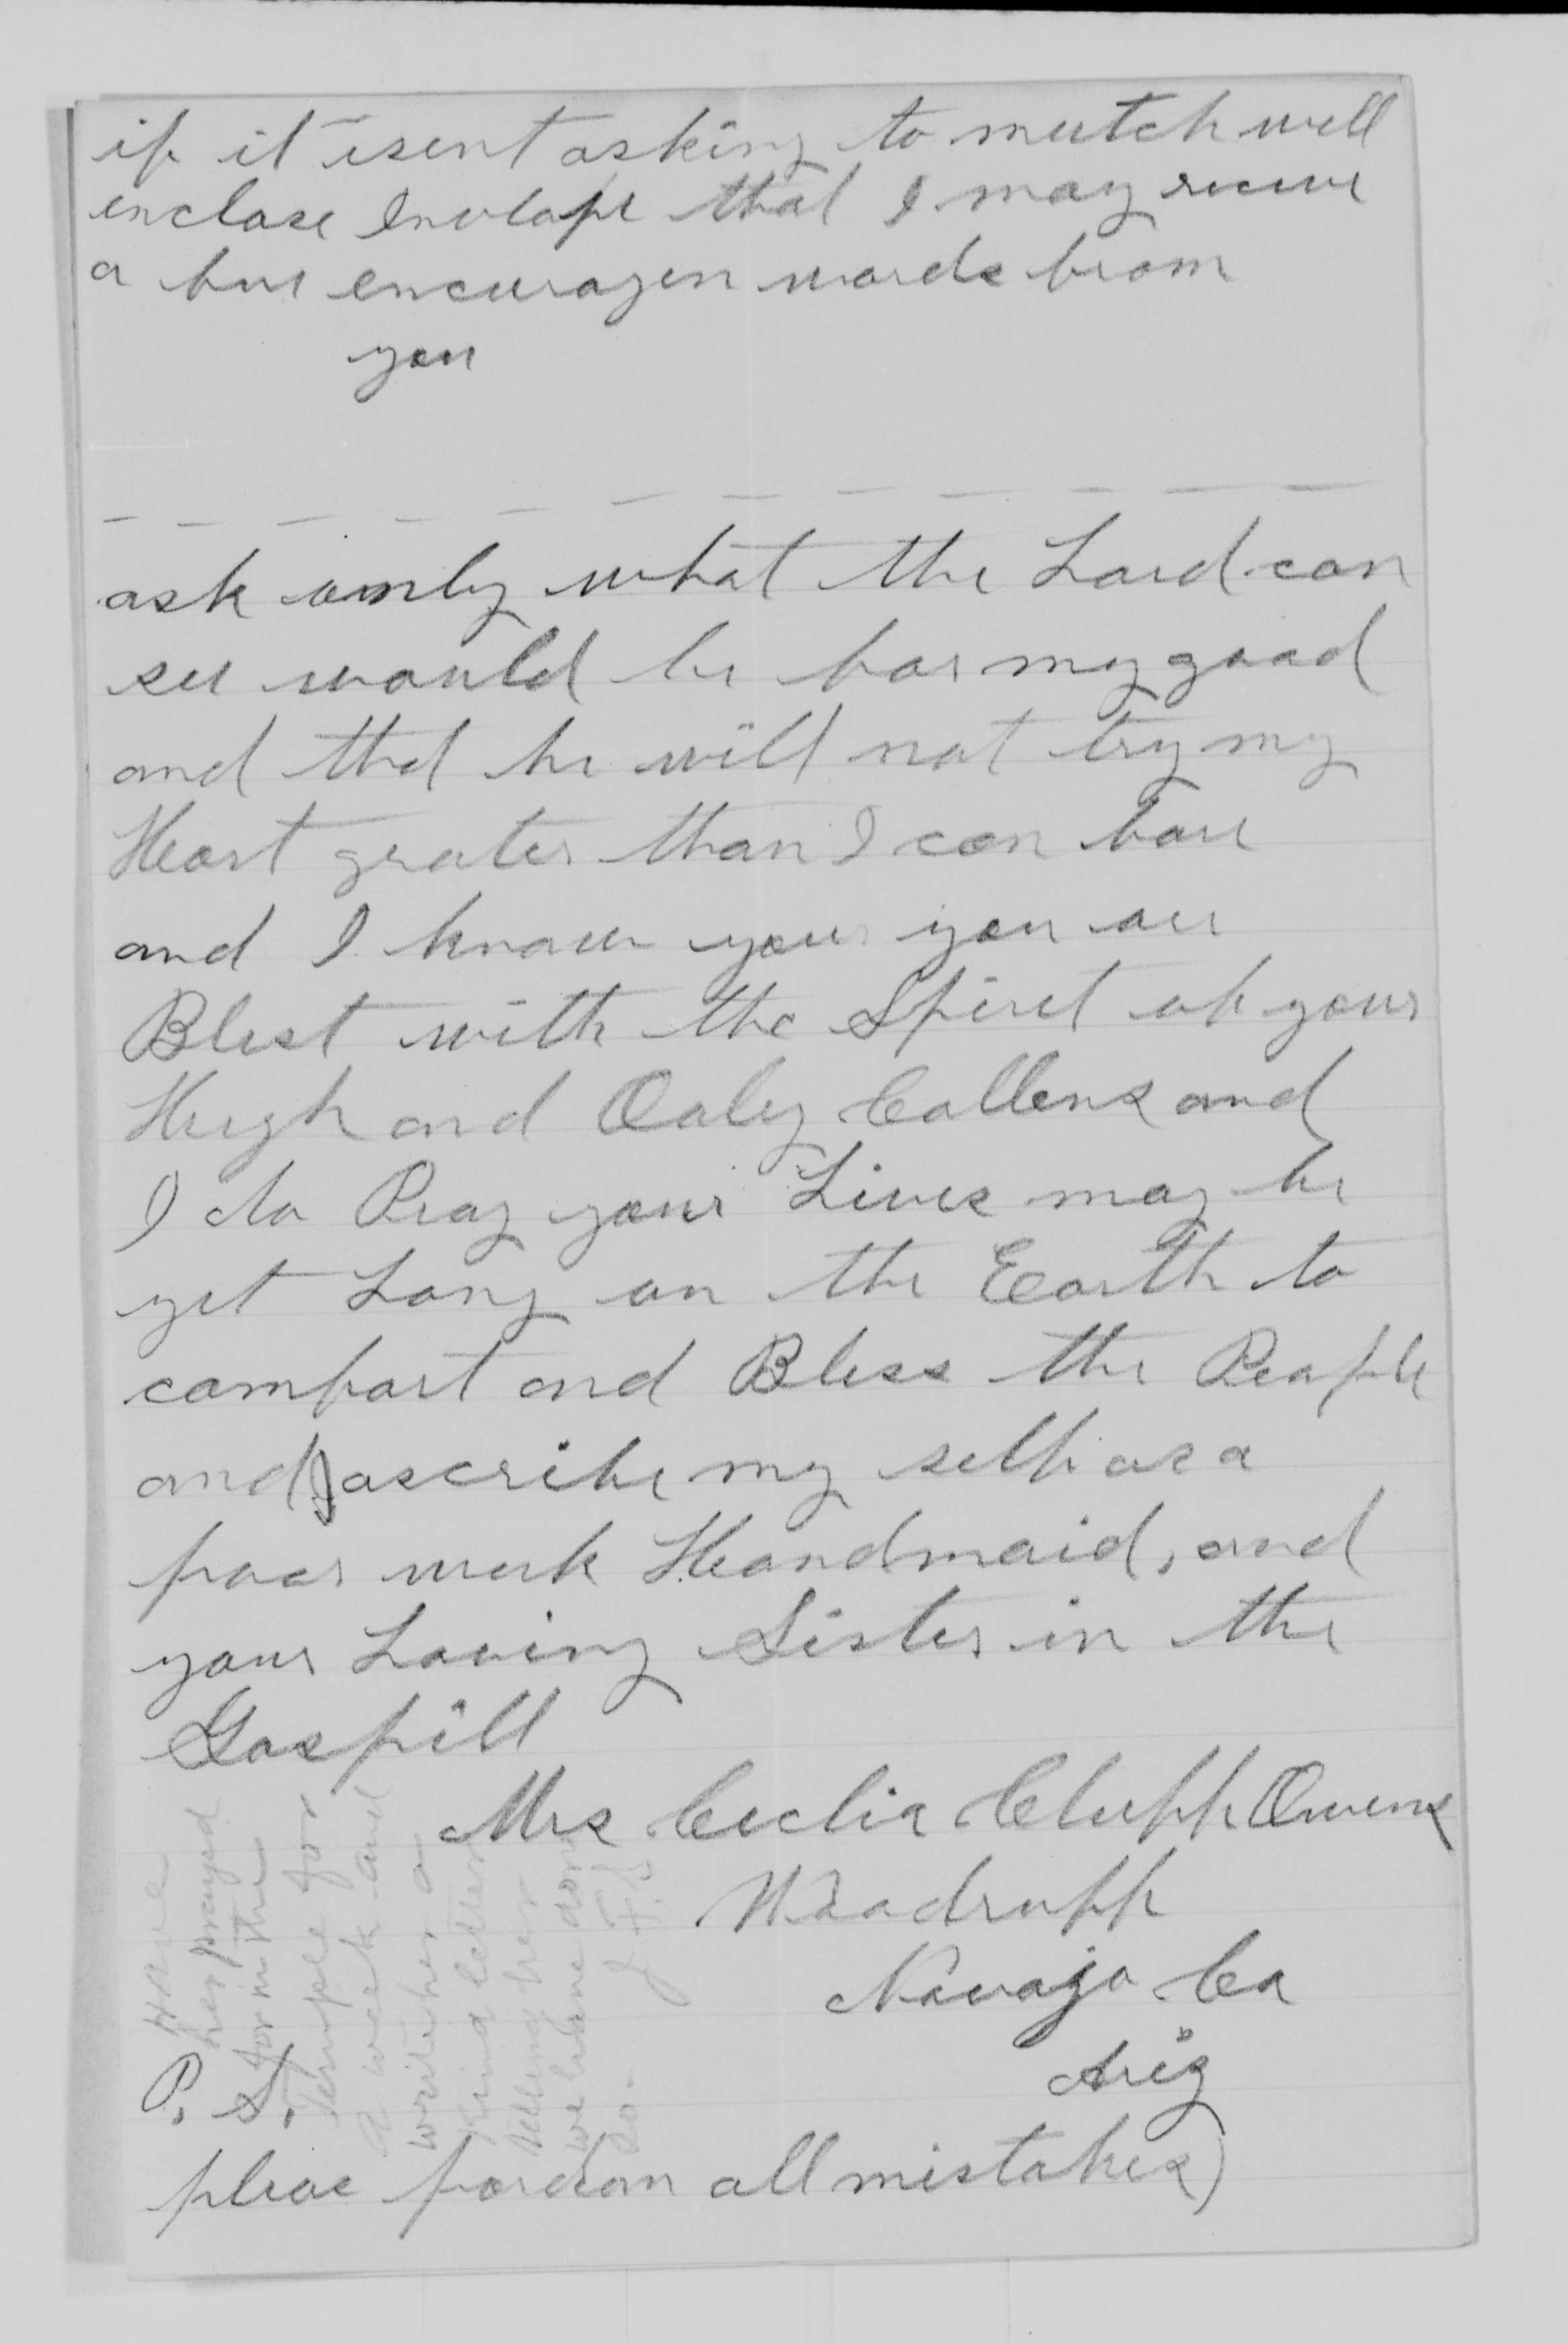 if it isent asking to mutch will
enclose Invelope that I may receive
a few encouragen words from
you
ask only what the Lord can
see would be for my good
and that he will not try my
Heart greater than I can bare
and I know your you are
Blest with the Spiret of your
Hugh and Oaly Callens and
I do Pray your Lives may be
yet Long on the Earth to
comfort and Bless the People
and I ascribe my self as a
poor weak Handmaid, and
your Loving Sister in the
Gospill
Mrs Ceclia Cluff Owens
Woodruff
Navajo Co
Ariz
P. S.
pleas pardon all mistakes)
Have
her prayed
for in the
Temple for
a week and
write her a
kind letter
telling her
we have done
so.
J. F. S.